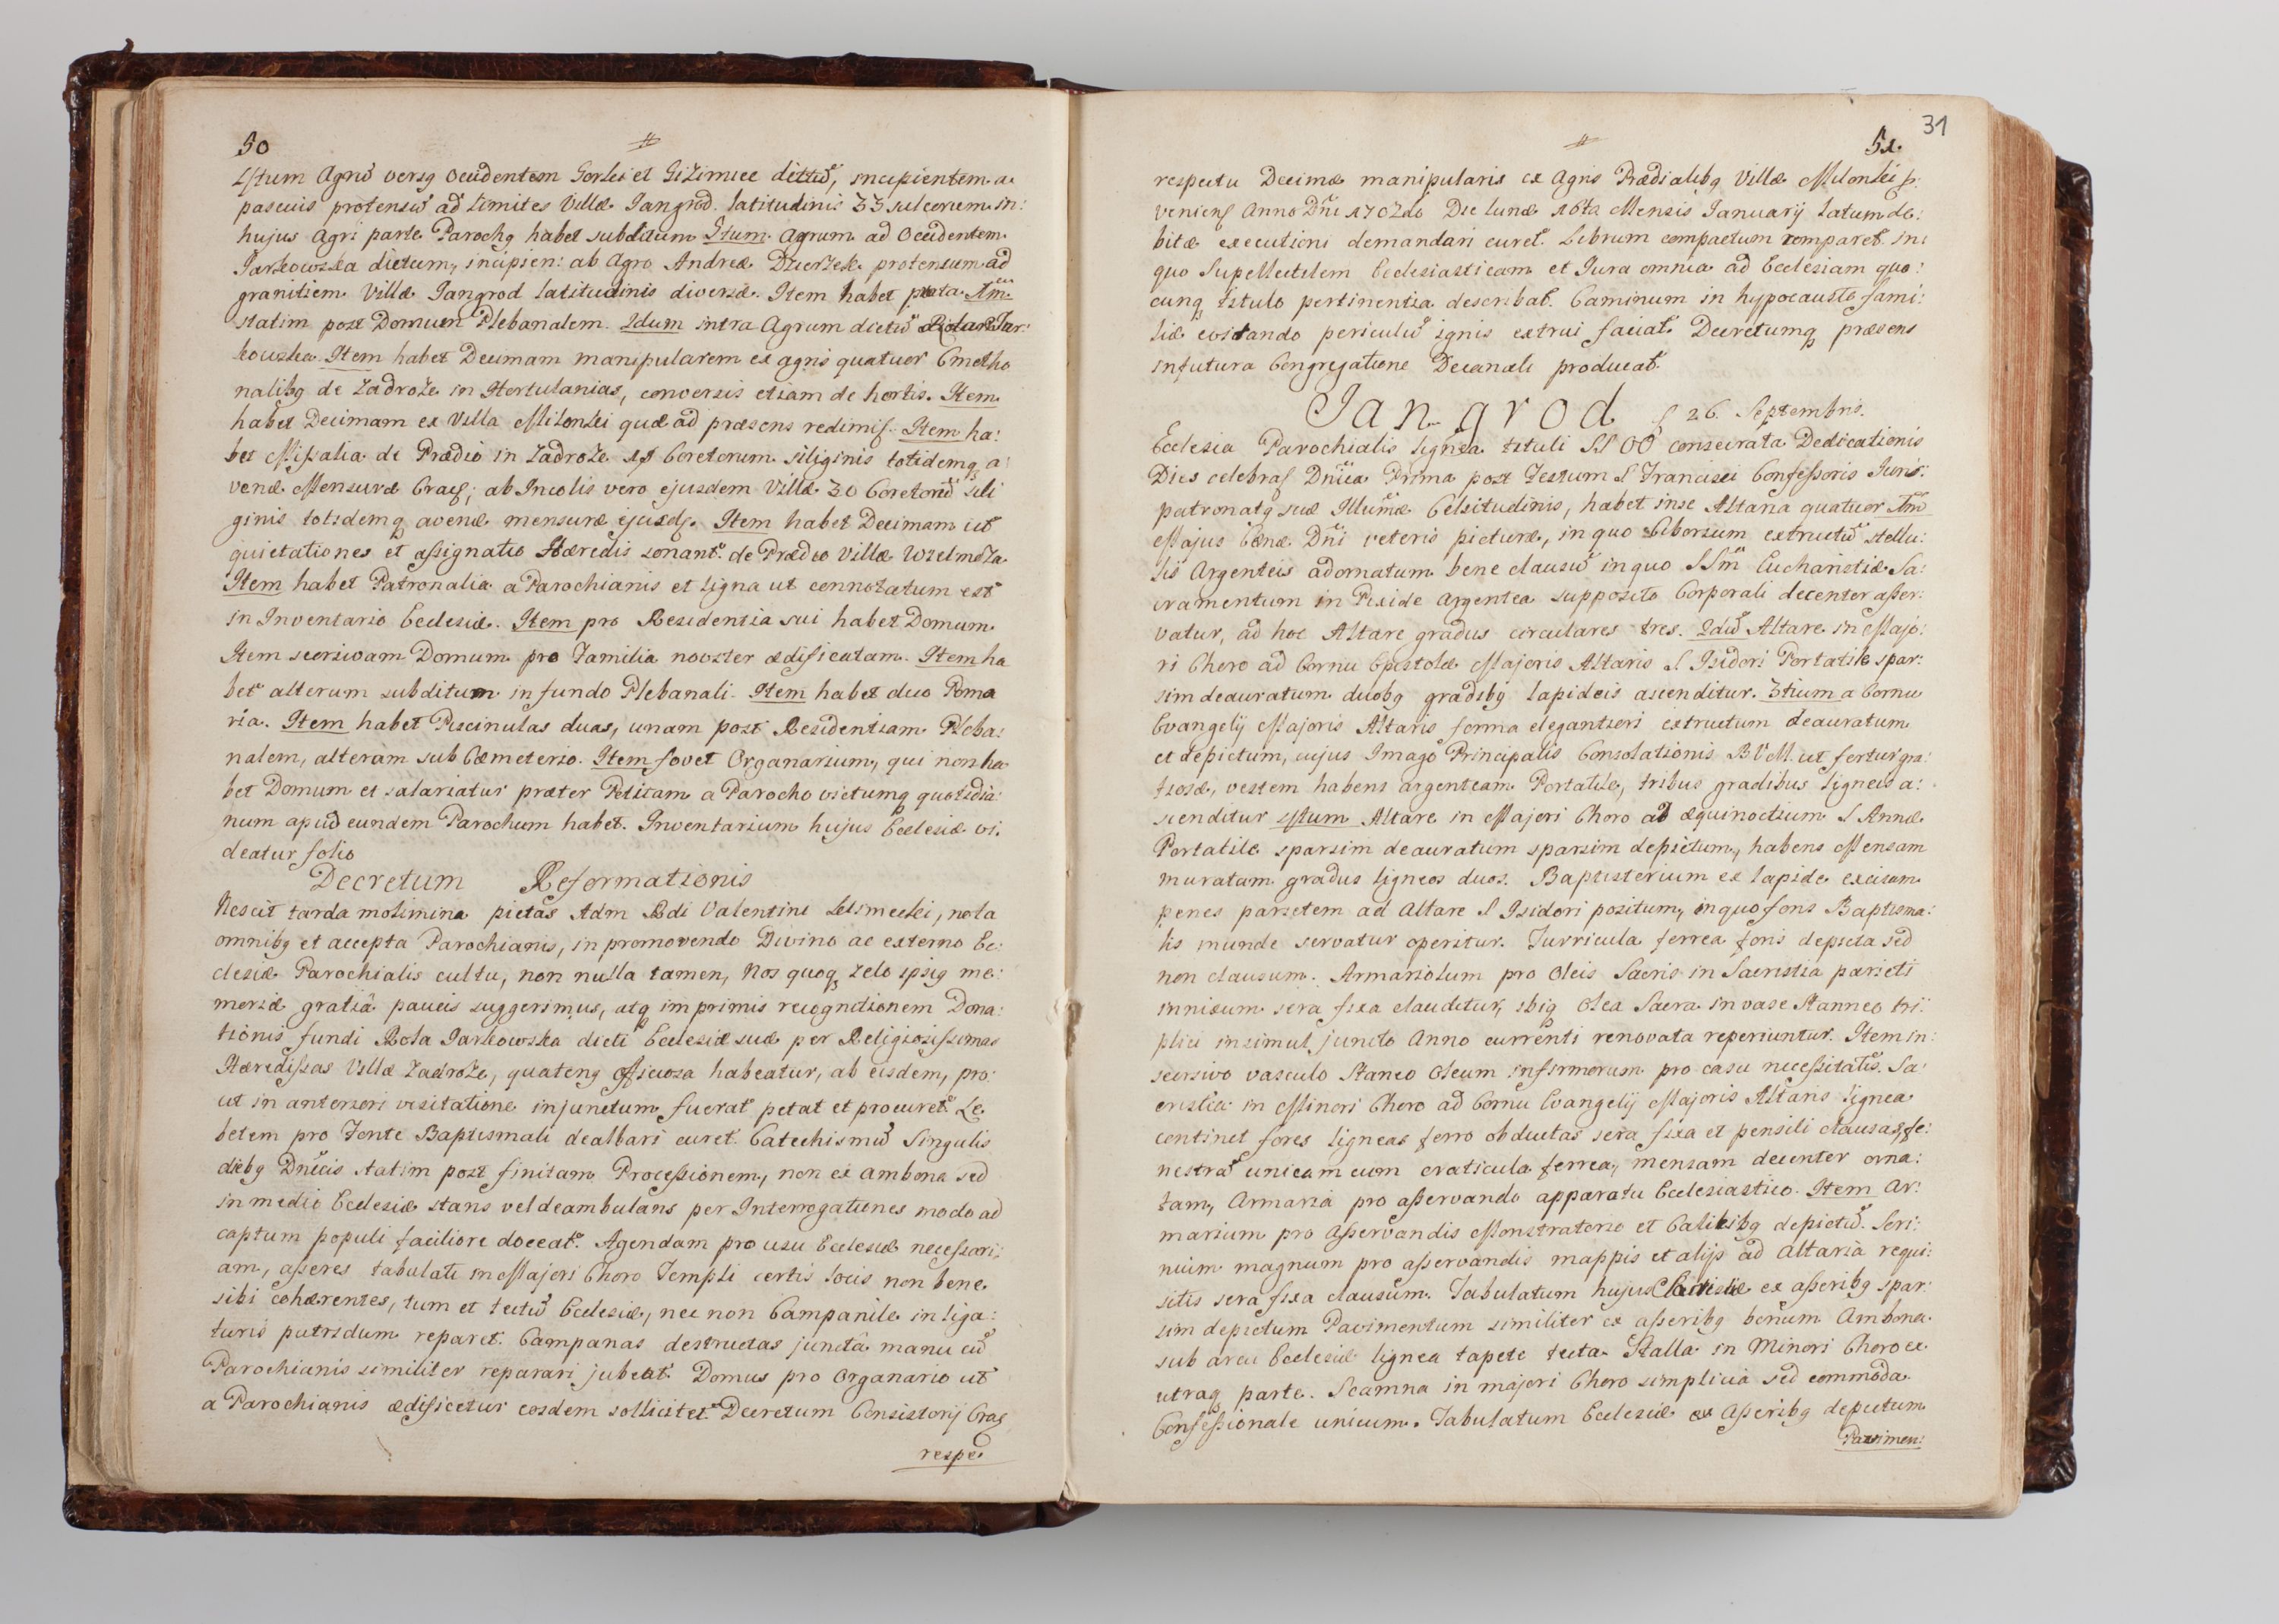 50
#
4tum Agrũ versꝯ Occidentem Gorki et Gizimice dictũ, incipientem a
pascuis protensũ ad Limites Villæ Jangrod latitudinis 33 sulcorum in:
hujus Agri parte Parochꝯ habet subditum 5tum Agrum ad Occidentem
Jarkowska dictum, incipien: ab Agro Andreæ Dzierżek protensum ad
granitiem Villæ Jangrod latitudinis diversæ. Item habet prata Jm̃
statim post Domum Plebanalem. 2dum intra Agrum dictũ Jar:
kowska. Item habet Decimam manipularem ex agris quatuor Cmetho
nalibꝯ de Zadroże in Hortulanias, conversis etiam de hortis. Item
habet Decimam ex Villa Milonki quæ ad præsens redimiſ. Item ha:
bet Missalia de Prædio in Zadroże Coretorum siliginis totidemq̨ a:
venæ Mensuræ Cracꝭ; ab Incolis vero ejusdem Villæ 30 Coretorũ sili
ginis totidemq̨ avenæ mensuræ ejusdꝭ. Item habet Decimam ut
quietationes et assignatio Hæredis sonant: de Prædio Villæ Wielmoża
Item habet Patronalia a Parochianis et Ligna ut connotatum est
in Inventario Ecclesiæ. Item pro Residentia sui habet Domum
Item seorsivam Domum pro Familia noviter ædificatam. Item ha
bet alterum subditum in fundo Plebanali. Item habet duo Poma
ria. Item habet Piscinulas duas, unam post Residentiam Pleba:
nalem, alteram sub Cæmeterio. Item fovet Organarium, qui non ha
bet Domum et salariatur præter Petitam a Parocho victumq̨ quotidia:
num apud eundem Parochum habet. Inventarium hujus Ecclesiæ vi:
deatur folio
Decretum Reformationis
Nescit tarda molimina pietas Adm Rdi Valentini Lelsmecki, nota
omnibꝯ et accepta Parochianis, in promovendo Divino ac externo Ec:
clesiæ Parochialis cultu, non nulla tamen, Nos quoq̨ zelo ipsiꝯ me:
moriæ gratiâ paucis suggerimus, atq̨ imprimis recognitionem Dona:
tionis fundi Rola Jarkowska dicti Ecclesiæ suæ per Religiosissimas
Hæredissas Villæ Zadroże, quatenꝯ officiosa habeatur, ab eisdem, pro:
ut in anteriori visitatione injunctum fuerat petat et procuret. Le
betem pro Fonte Baptismali dealbari curet. Catechismũ Singulis
diebꝯ Dnĩcis statim post finitam Processionem, non ex ambona sed
in medio Ecclesiæ stans vel deambulans per Interrogationes modo ad
captum populi faciliore doceat. Agendam pro usu Ecclesiæ necessari:
am, asseres tabulati in Majori Choro Templi certis locis non bene
sibi cohærentes, tum et tectũ Ecclesiæ, nec non Campanile in liga:
turis putridum reparet. Campanas destructas junctâ manu cũ
Parochianis similiter reparari jubeat. Domus pro Organario ut
a Parochianis ædificetur eosdem sollicitet. Decretum Consistorij Cracꝭ
respe
31
#
51.
respectu Decimæ manipularis ex Agris Prædialibꝯ Villæ Milonki ꝑ:
veniens Anno Dñi 1702do Die Lunæ 16ta Mensis Januarij latum de:
bitæ executioni demandari curet. Librum compactum comparet in:
quo Supellectilem Ecclesiasticam et Jura omnia ad Ecclesiam quo:
cunq̨ titulo pertinentia describat. Caminum in hypocausto fami:
liæ evitando periculũ ignis extrui faciat. Decretumq̨ præsens
in futura Congregatione Decanali producat.
Jangrod 26. Septembris.
Ecclesia Parochialis lignea tituli SS OO consecrata Dedicationis
Dies celebraſ Dnĩca Prima post Festum S Francisci Confessoris Juris:
patronatꝯ suæ Illũmæ Celsitudinis, habet in se Altaria quatuor Jm̃
Majus Cænæ Dñi veteris picturæ, in quo Ciborium extructũ stellu:
lis Argenteis adornatum bene clausũ in quo SSm̃ Eucharistiæ Sa:
cramentum in Pixide Argentea supposito Corporali decenter asser:
vatur, ad hoc Altare gradus circulares tres. 2dũ Altare in Majo:
ri Choro ad Cornu Epistolæ Majoris Altaris S Isidori Portatile spar:
sim deauratum duobꝯ gradibꝯ lapideis ascenditur. 3tium a Cornu
Evangelij Majoris Altaris forma elegantiori extructum deauratum
et depictum, cujus Imago Principalis Consolationis B V M. ut fertur gra:
tiosæ, vestem habens argenteam Portatile, tribus gradibus ligneis a:
scenditur 4tum Altare in Majori Choro ad æquinoctium S Annæ
Portatile sparsim deauratum sparsim depictum, habens Mensam
muratam gradus ligneos duos. Baptisterium ex lapide excisum
penes parietem ad Altare S Isidori positum, in quo fons Baptisma:
lis munde servatur operitur. Turricula ferrea foris depicta sed
non clausum. Armariolum pro Oleis Sacris in Sacristia parieti
innixum sera fixa clauditur, ibiꝯ Olea Sacra in vase Stanneo tri:
plici insimul juncto Anno currenti renovata reperiuntur. Item in:
seorsivo vasculo Staneo Oleum infirmorum pro casu necessitatis. Sa:
cristia in Minori Choro ad Cornu Evangelij Majoris Altaris lignea
continet fores ligneas ferro obductas sera fixa et pensili clausas, fe:
nestrã unicam cum craticula ferrea, mensam decenter orna:
tam, Armaria pro asservando apparatu Ecclesiastico. Item Ar:
marium pro Asservandis Monstratorio et Calicibꝯ depictũ. Scri:
nium magnum pro asservandis mappis et alijs ad Altaria requi:
sitis sera fixa clausum. Tabulatum hujus ex asseribꝯ spar:
sim depictum Pavimentum similiter ex asseribꝯ bonum Ambona
sub arcu Ecclesiæ lignea tapete tecta. Stalla in Minori Choro ex
utraq̨ parte. Scamna in majori Choro simplicia sed commoda
Confessionale unicum. Tabulatum Ecclesiæ ex Asseribꝯ depictum
Pavimen: